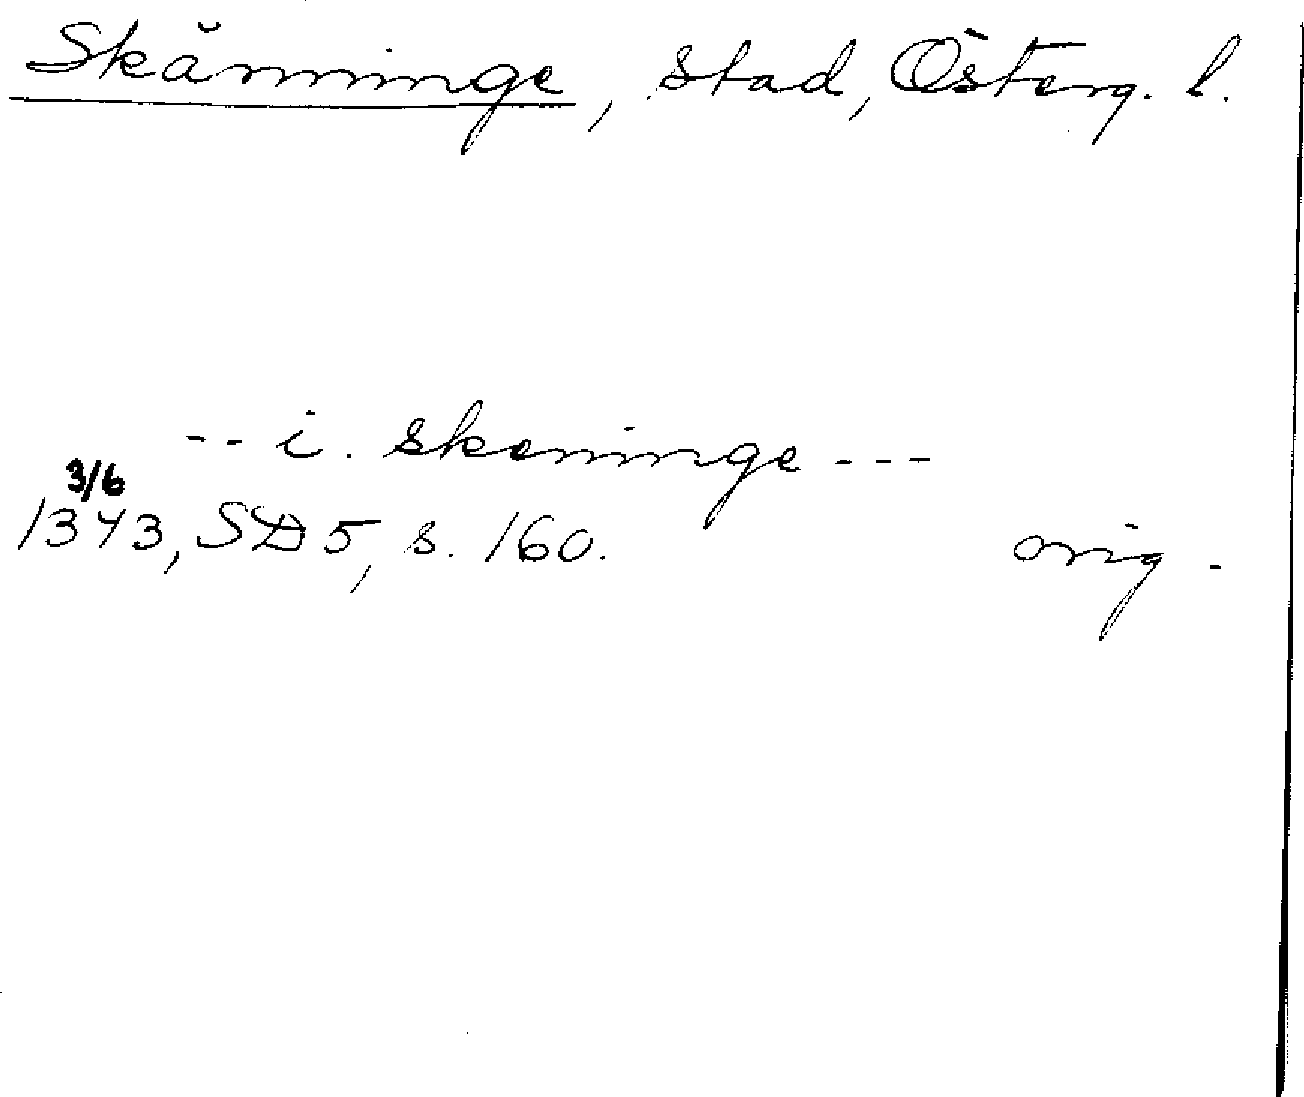 Skänninge, stad, Österg. l.
-- i. skeninge ---
3/6
1343, SD 5, s. 160. orig.